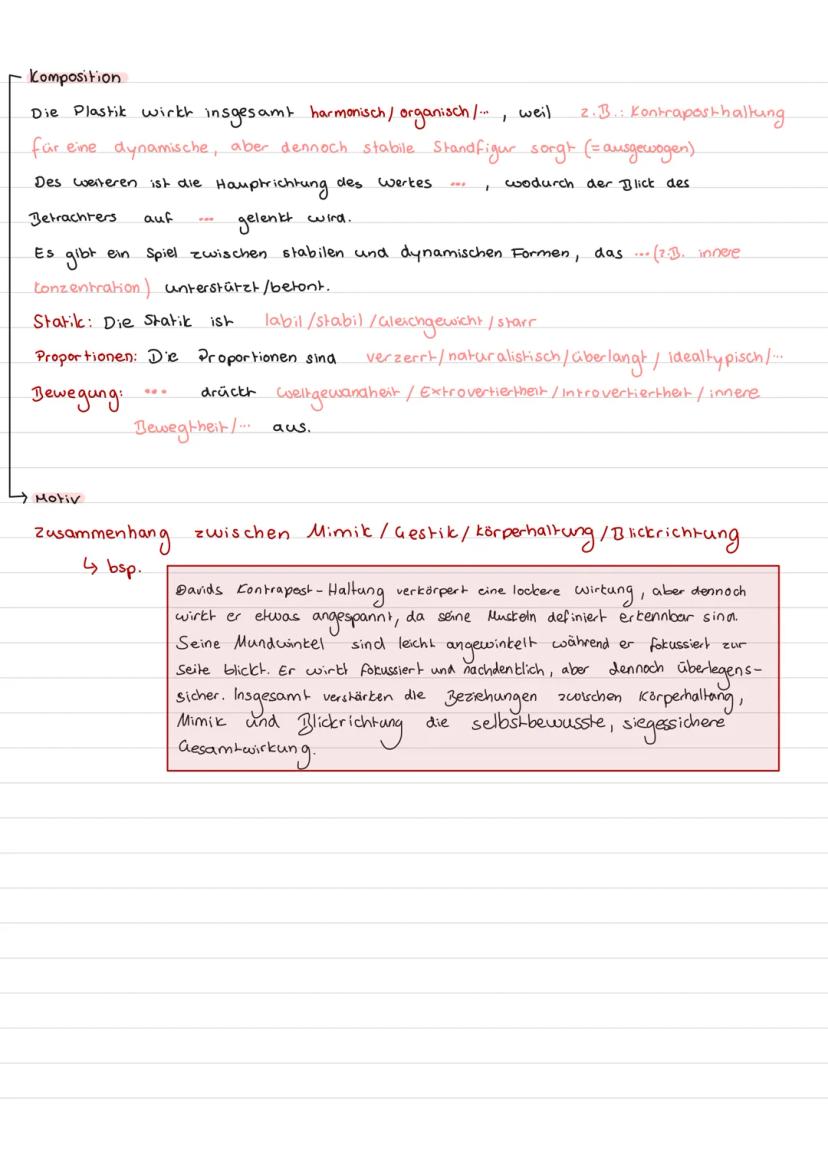 Komposition
Die Plastik wirkt insgesamt harmonisch/organisch/..., weil z.B.: Kontraposthaltung
für eine dynamische, aber dennoch stabile Standfigur sorgt (=ausgewogen)
Des weiteren ist die Hauptrichtung des Werkes ..., wodurch der Blick des
Betrachters auf ... gelenkt wird.
Es gibt ein Spiel zwischen stabilen und dynamischen Formen, das ...(z.B. innere
Konzentration) unterstützt/betont.
Statik: Die Statik ist labil/stabil/Gleichgewicht/starr
Proportionen: Die Proportionen sind verzerrt/naturalistisch/überlangt/idealtypisch/...
Bewegung: ... drückt Weltgewandheit/Extrovertiertheit/Introvertiertheit/innere
Bewegtheit/... aus.
→ Motiv
Zusammenhang zwischen Mimik/Gestik/Körperhaltung/Blickrichtung
↳ bsp.
Davids Kontrapost-Haltung verkörpert eine lockere wirkung, aber dennoch
wirkt er etwas angespannt, da seine Muskeln definiert erkennbar sind.
Seine Mundwinkel sind leicht angewinkelt während er fokussiert zur
Seite blickt. Er wirkt fokussiert und nachdenklich, aber dennoch überlegens-
sicher. Insgesamt verstärken die Beziehungen zwischen Körperhaltung,
Mimik und Blickrichtung die selbstbewusste, siegessichere
Gesamtwirkung.